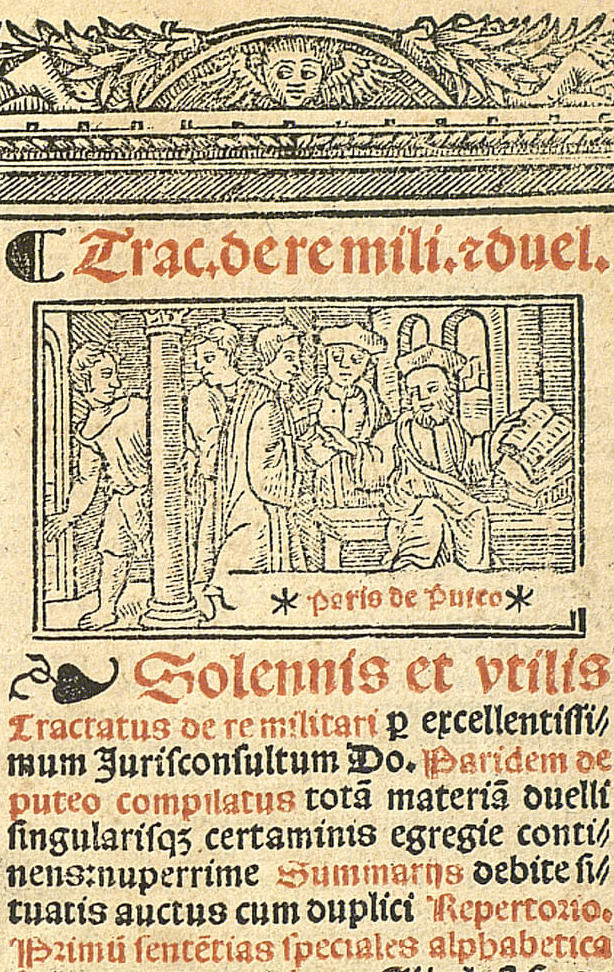 ¶ Trac. de re mili. ⁊ duel.
* Paris de Puteo *
❧ Solennis et vtilis
Tractatus de re militari ꝑ excellentiſſi⸗
mum Juriſconſultum Do. Paridem de
puteo compilatus totā materiā duelli
ſingulariſqꝫ certaminis egregie conti⸗
nens: nuperrime Summarijs debite ſi⸗
tuatis auctus cum duplici Repertorio.
Primū ſentētias ſpeciales alphabetica